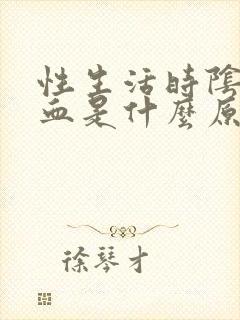 性生活時陰
血是什麼原
徐琴才